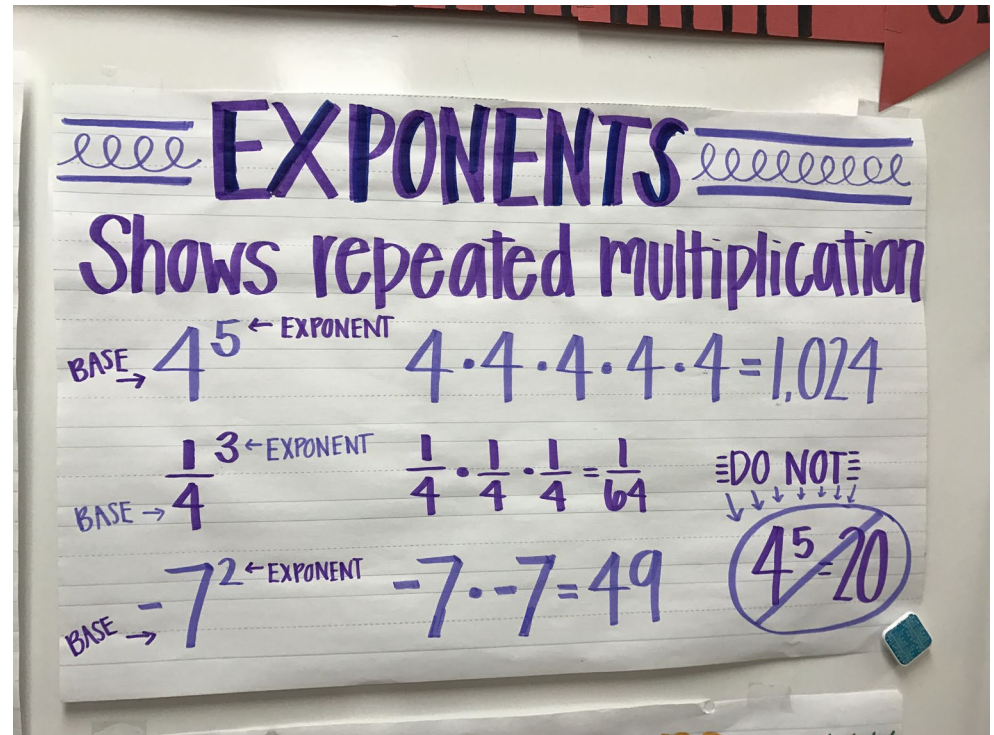 EXPONENTS
Shows repeated multiplication
BASE → 4⁵ ← EXPONENT 4·4·4·4·4=1,024
BASE → 1/4 ³ ← EXPONENT 1/4 · 1/4 · 1/4 = 1/64
DO NOT
4⁵=20
BASE → -7² ← EXPONENT -7·-7=49